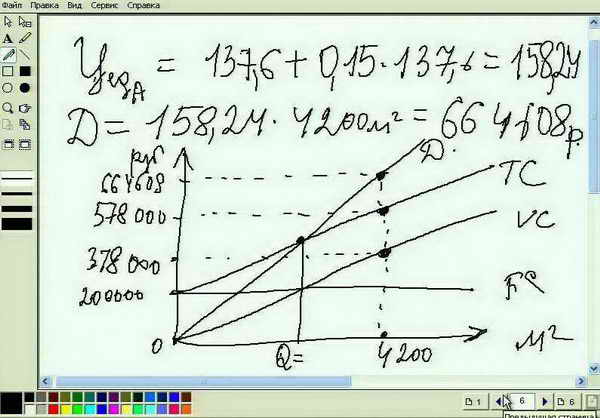 Файл Правка Вид Сервис Справка
Цед_A = 137,6 + 0,15 · 137,6 = 158,24
Д = 158,24 · 4200 м² = 664608 р.
руб
Д.
664608
TC
578 000
VC
378 000
200000
FC
0
Q=
4200
м²
1
6
6
Предыдущая страница